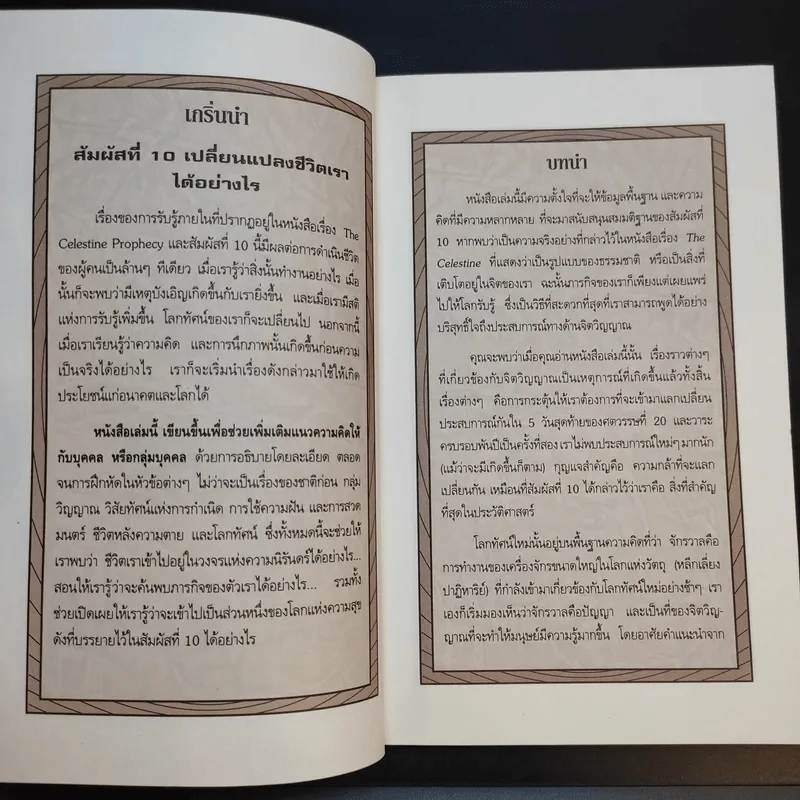 เกริ่นนำ
สัมผัสที่ 10 เปลี่ยนแปลงชีวิตเรา
ได้อย่างไร
เรื่องของการรับรู้ภายในที่ปรากฏอยู่ในหนังสือเรื่อง The
Celestine Prophecy และสัมผัสที่ 10 นี้มีผลต่อการดำเนินชีวิต
ของผู้คนเป็นล้านๆ ทีเดียว เมื่อเรารู้ว่าสิ่งนั้นทำงานอย่างไร เมื่อ
นั้นก็จะพบว่ามีเหตุบังเอิญเกิดขึ้นกับเรายิ่งขึ้น และเมื่อเรามีสติ
แห่งการรับรู้เพิ่มขึ้น โลกทัศน์ของเราก็จะเปลี่ยนไป นอกจากนี้
เมื่อเราเรียนรู้ว่าความคิด และการนึกภาพนั้นเกิดขึ้นก่อนความ
เป็นจริงได้อย่างไร เราก็จะเริ่มนำเรื่องดังกล่าวมาใช้ให้เกิด
ประโยชน์แก่อนาคตและโลกได้
หนังสือเล่มนี้ เขียนขึ้นเพื่อช่วยเพิ่มเติมแนวความคิดให้
กับบุคคล หรือกลุ่มบุคคล ด้วยการอธิบายโดยละเอียด ตลอด
จนการฝึกหัดในหัวข้อต่างๆ ไม่ว่าจะเป็นเรื่องของชาติก่อน กลุ่ม
วิญญาณ วิสัยทัศน์แห่งการกำเนิด การใช้ความฝัน และการสวด
มนตร์ ชีวิตหลังความตาย และโลกทัศน์ ซึ่งทั้งหมดนี้จะช่วยให้
เราพบว่า ชีวิตเราเข้าไปอยู่ในวงจรแห่งความนิรันดร์ได้อย่างไร...
สอนให้เรารู้ว่าจะค้นพบภารกิจของตัวเราได้อย่างไร... รวมทั้ง
ช่วยเปิดเผยให้เรารู้ว่าจะเข้าไปเป็นส่วนหนึ่งของโลกแห่งความสุข
ดังที่บรรยายไว้ในสัมผัสที่ 10 ได้อย่างไร
บทนำ
หนังสือเล่มนี้มีความตั้งใจที่จะให้ข้อมูลพื้นฐาน และความ
คิดที่มีความหลากหลาย ที่จะมาสนับสนุนสมมติฐานของสัมผัสที่
10 หากพบว่าเป็นความจริงอย่างที่กล่าวไว้ในหนังสือเรื่อง The
Celestine ที่แสดงว่าเป็นรูปแบบของธรรมชาติ หรือเป็นสิ่งที่
เติบโตอยู่ในจิตของเรา ฉะนั้นภารกิจของเราก็เพียงแต่เผยแพร่
ไปให้โลกรับรู้ ซึ่งเป็นวิธีที่สะดวกที่สุดที่เราสามารถพูดได้อย่าง
บริสุทธิ์ใจถึงประสบการณ์ทางด้านจิตวิญญาณ
คุณจะพบว่าเมื่อคุณอ่านหนังสือเล่มนี้นั้น เรื่องราวต่างๆ
ที่เกี่ยวข้องกับจิตวิญญาณเป็นเหตุการณ์ที่เกิดขึ้นแล้วทั้งสิ้น
เรื่องต่างๆ คือการกระตุ้นให้เราต้องการที่จะเข้ามาแลกเปลี่ยน
ประสบการณ์กันใน 5 วันสุดท้ายของศตวรรษที่ 20 และวาระ
ครบรอบพันปีเป็นครั้งที่สอง เราไม่พบประสบการณ์ใหม่ๆ มากนัก
(แม้ว่าจะมีเกิดขึ้นก็ตาม) กุญแจสำคัญคือ ความกล้าที่จะแลก
เปลี่ยนกัน เหมือนที่สัมผัสที่ 10 ได้กล่าวไว้ว่าเราคือ สิ่งที่สำคัญ
ที่สุดในประวัติศาสตร์
โลกทัศน์ใหม่นั้นอยู่บนพื้นฐานความคิดที่ว่า จักรวาลคือ
การทำงานของเครื่องจักรขนาดใหญ่ในโลกแห่งวัตถุ (หลีกเลี่ยง
ปาฏิหาริย์) ที่กำลังเข้ามาเกี่ยวข้องกับโลกทัศน์ใหม่อย่างช้าๆ เรา
เองก็เริ่มมองเห็นว่าจักรวาลคือปัญญา และเป็นที่ของจิตวิญ-
ญาณที่จะทำให้มนุษย์มีความรู้มากขึ้น โดยอาศัยคำแนะนำจาก